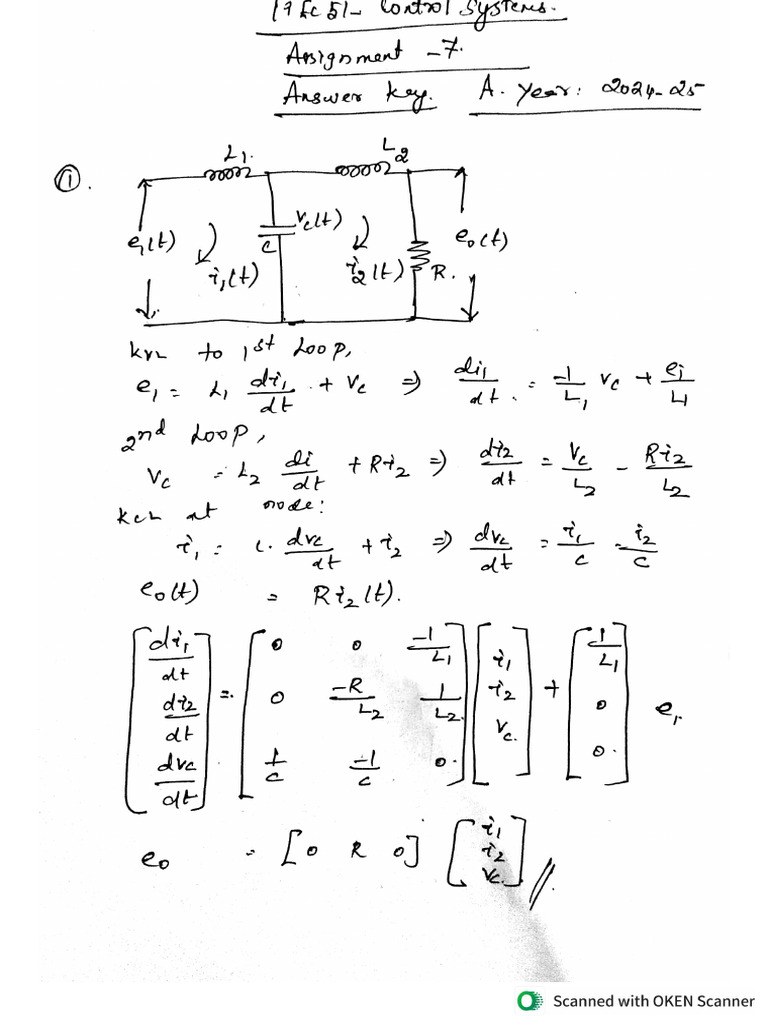 19EC51- Control Systems.
Assignment -7.
Answer key. A. Year: 2024-25
①.
L1. L2
ei(t) i1(t) C Vc(t) i2(t) R. eo(t)
KVL to 1st Loop,
e1 = L1 di1/dt + Vc ⇒ di1/dt = -1/L1 Vc + ei/L1
2nd Loop,
Vc = L2 di/dt + Ri2 ⇒ di2/dt = Vc/L2 - Ri2/L2
KCL at node:
i1 = C. dvc/dt + i2 ⇒ dvc/dt = i1/C - i2/C
eo(t) = Ri2(t).
[di1/dt di2/dt dvc/dt] = [0 0 -1/L1 0 -R/L2 1/L2. 1/C -1/C 0.] [i1 i2 Vc.] + [1/L1 0 0.] e1
eo = [0 R 0] [i1 i2 Vc.] //.
Scanned with OKEN Scanner